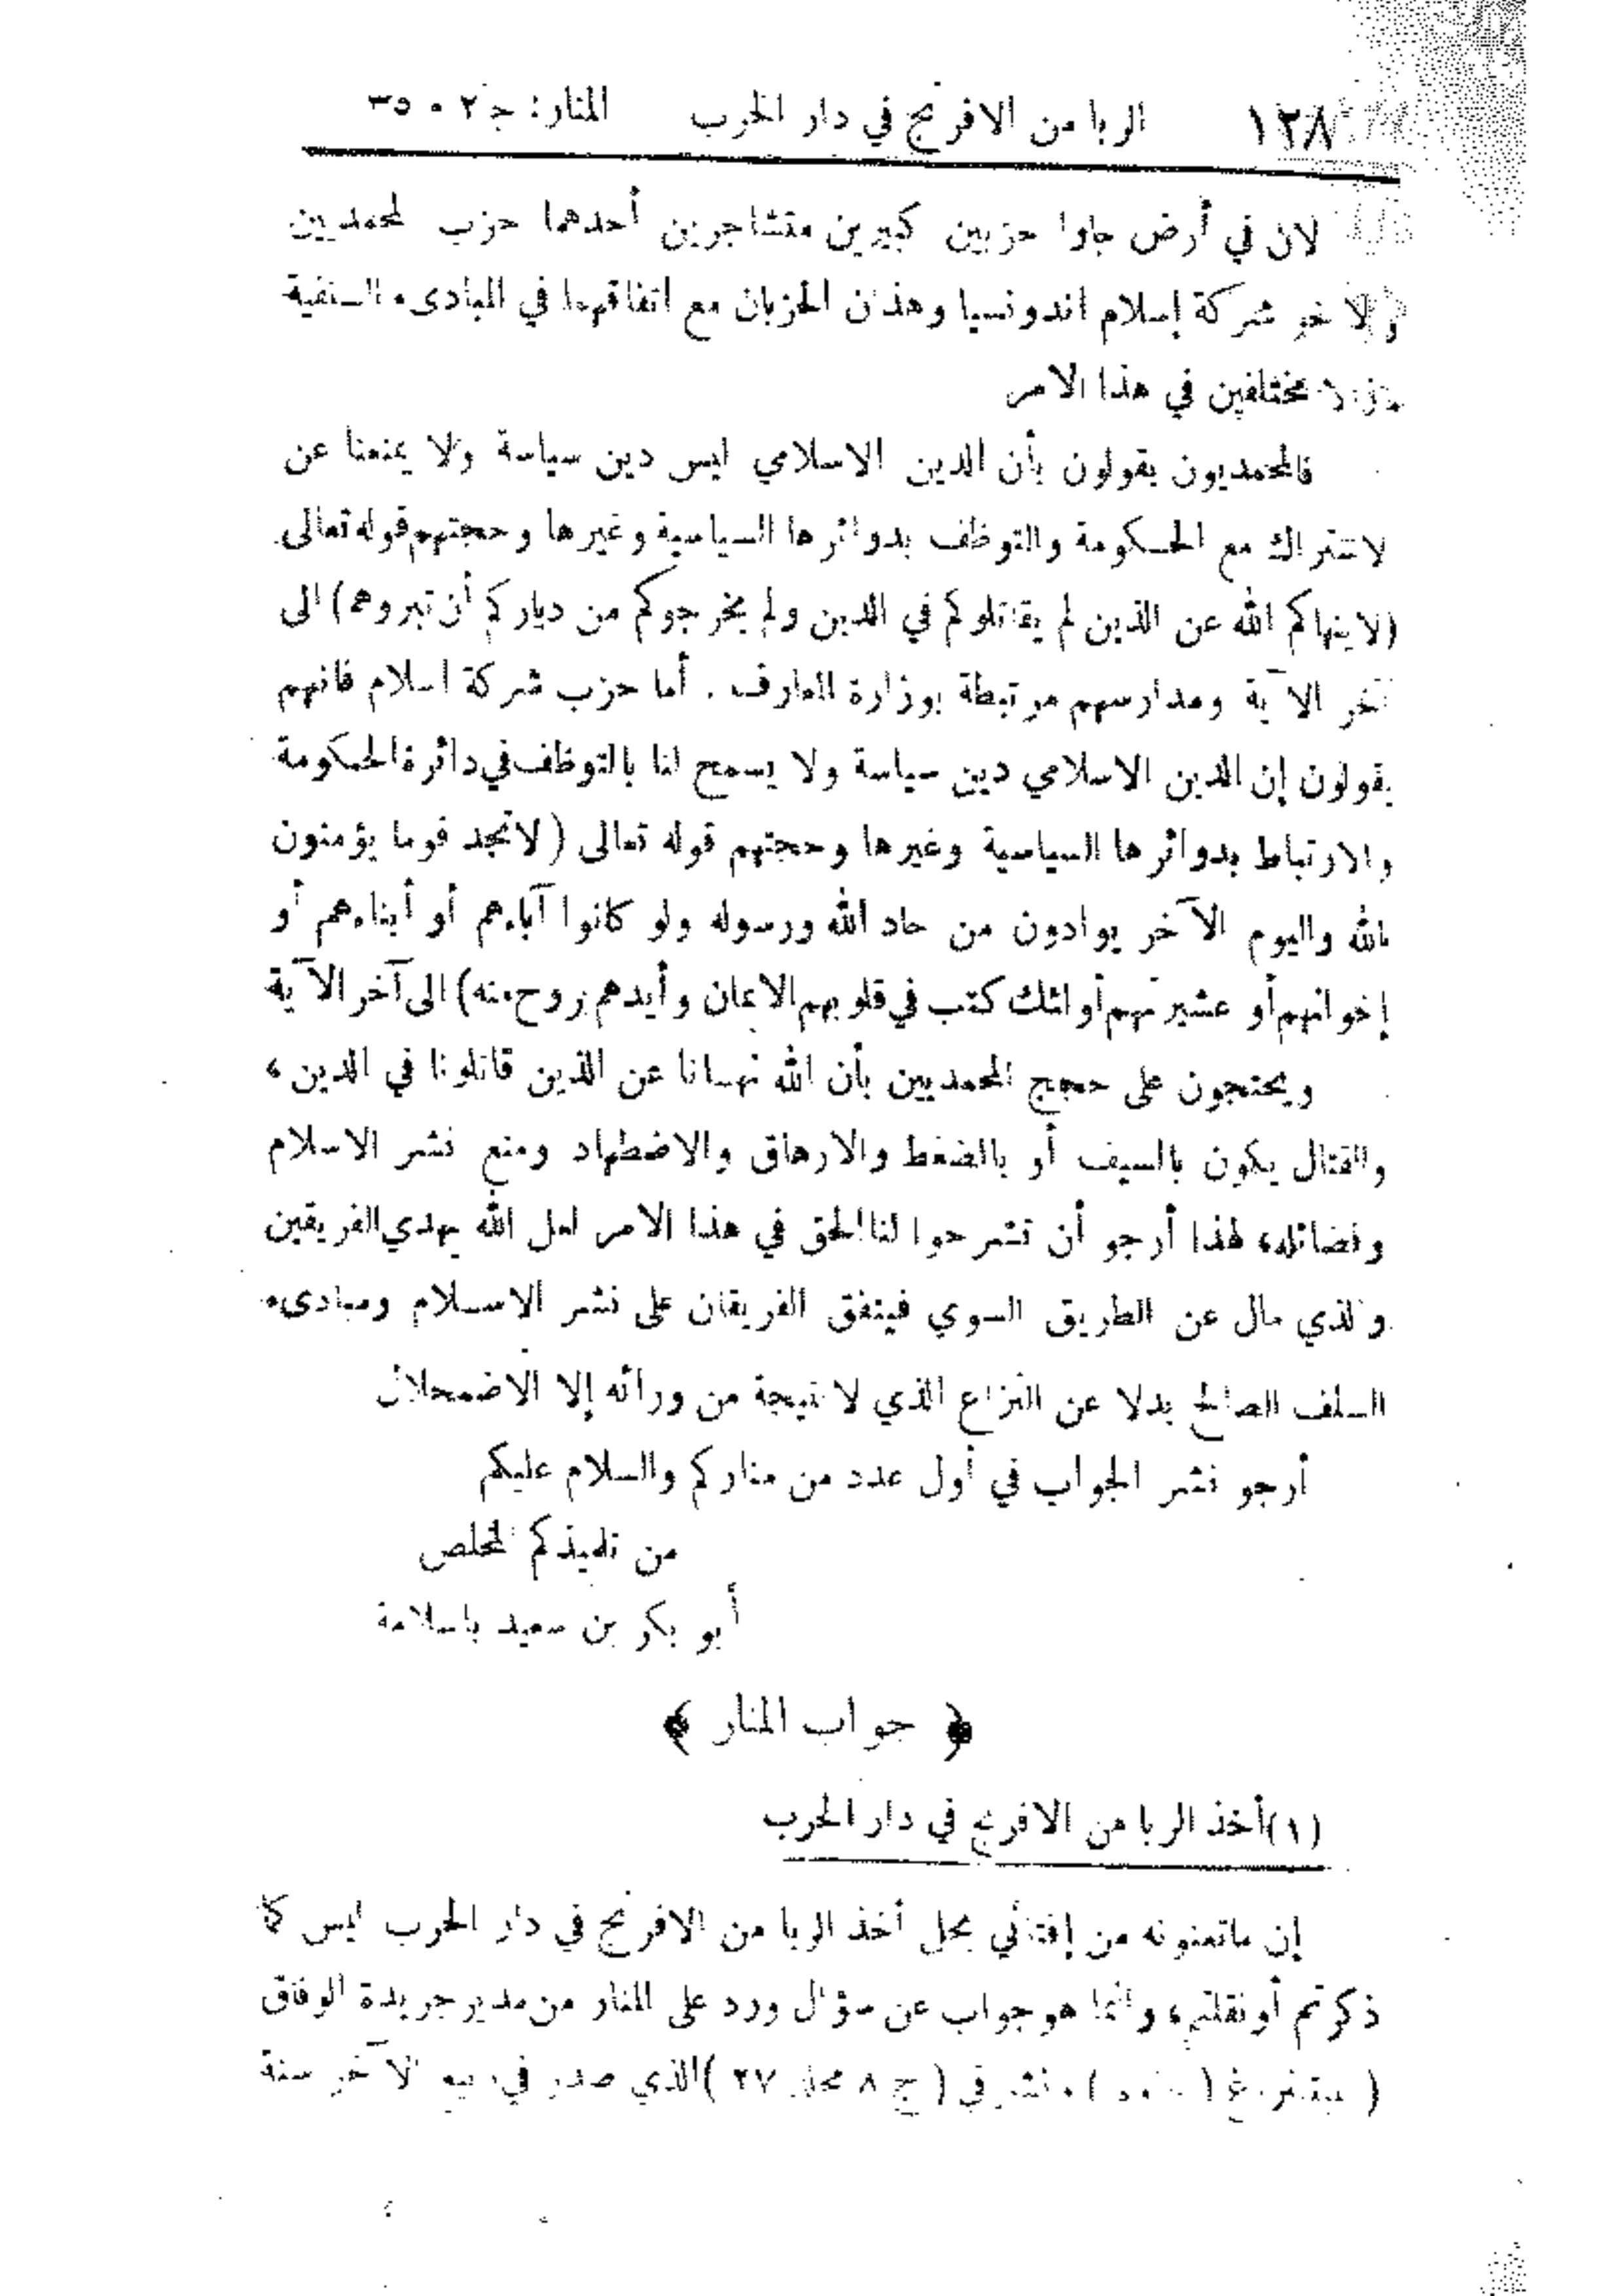 ١٢٨ الربا من الافرنج في دار الحرب المنار: ج٢ م ٣٥
لان في أرض جاوا حزبين كبيرين متشاجرين أحدهما حزب المحمديين
والآخر شركة إسلام اندونسيا وهذان الحزبان مع اتفاقهما في المبادىء السلفية
مختلفين في هذا الامر
فالمحمديون يقولون بأن الدين الاسلامي ليس دين سياسة ولا يمنعنا عن
لاشتراك مع الحكومة والتوظف بدوائرها السياسية وغيرها وحجتهم قوله تعالى
(لا ينهاكم الله عن الذين لم يقاتلوكم في الدين ولم يخرجوكم من دياركم أن تبروهم) الى
آخر الآية ومدارسهم مرتبطة بوزارة المعارف . أما حزب شركة اسلام فانهم
يقولون إن الدين الاسلامي دين سياسة ولا يسمح لنا بالتوظف في دائرة الحكومة
والارتباط بدوائرها السياسية وغيرها وحجتهم قوله تعالى (لا تجد قوما يؤمنون
بالله واليوم الآخر يوادون من حاد الله ورسوله ولو كانوا آباءهم أو أبناءهم أو
إخوانهم أو عشيرتهم أولئك كتب في قلوبهم الايمان وأيدهم بروح منه) الى آخر الآية
ويحتجون على حجج المحمديين بأن الله نهانا عن الذين قاتلونا في الدين ،
والقتال يكون بالسيف أو بالضغط والارهاق والاضطهاد ومنع نشر الاسلام
وفضائله، لهذا أرجو أن تشرحوا لنا الحق في هذا الامر لعل الله يهدي الفريقين
والذي مال عن الطريق السوي فيتفق الفريقان على نشر الاسلام ومبادىء
السلف الصالح بدلا عن النزاع الذي لا نتيجة من ورائه إلا الاضمحلال
أرجو نشر الجواب في أول عدد من مناركم والسلام عليكم
من تلميذكم المخلص
أبو بكر بن سعيد باسلامة
﴿ جواب المنار ﴾
(١) أخذ الربا من الافرنج في دار الحرب
إن ما تعنونه من إفتائي بحل أخذ الربا من الافرنج في دار الحرب ليس كما
ذكرتم أو نقلتم، وانما هو جواب عن سؤال ورد على المنار من مدير جريدة الوفاق
( نشر في ( ج ٨ مجلد ٢٧ ) الذي صدر في ربيع الآخر سنة